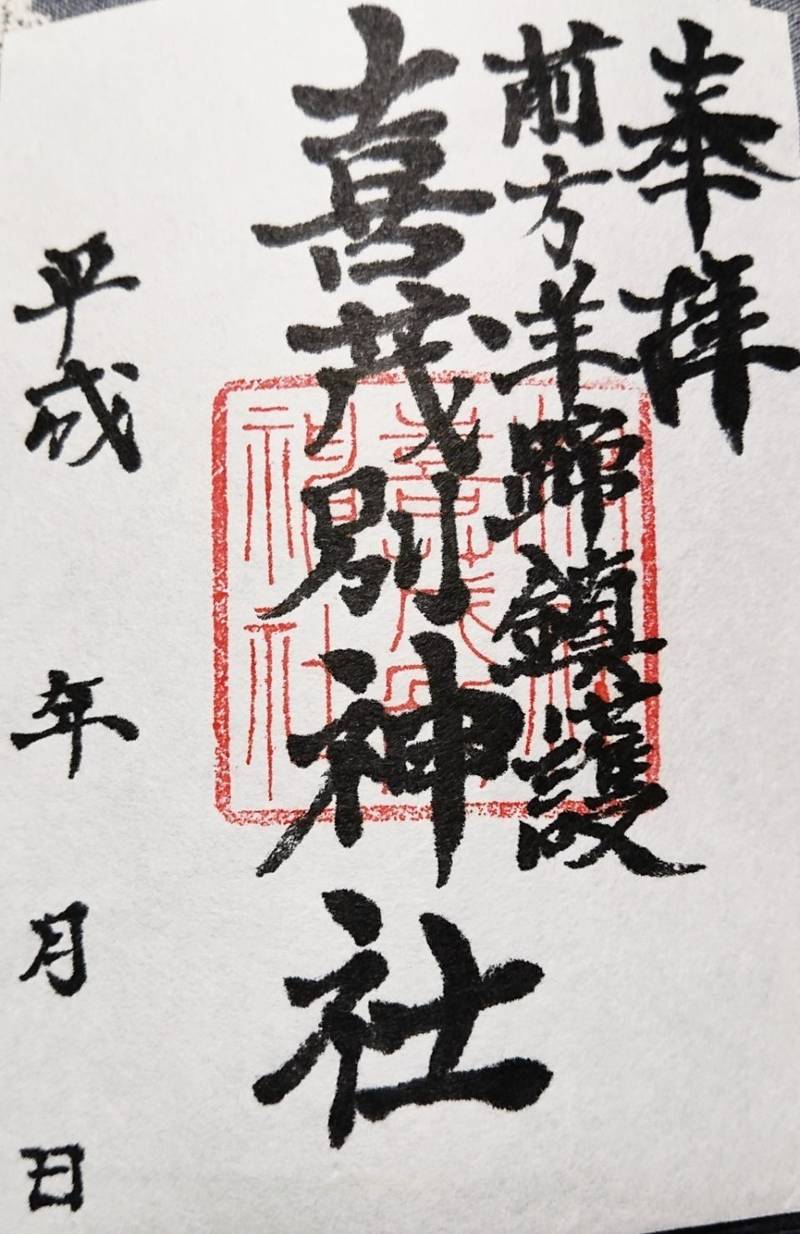 奉拝
前方羊蹄鎮護
喜茂別神社
平成 年 月 日